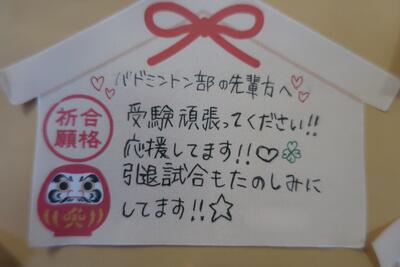 バドミントン部の先輩方へ
合格
祈願
受験頑張ってください!!
応援してます!!♡
引退試合もたのしみに
してます!!☆